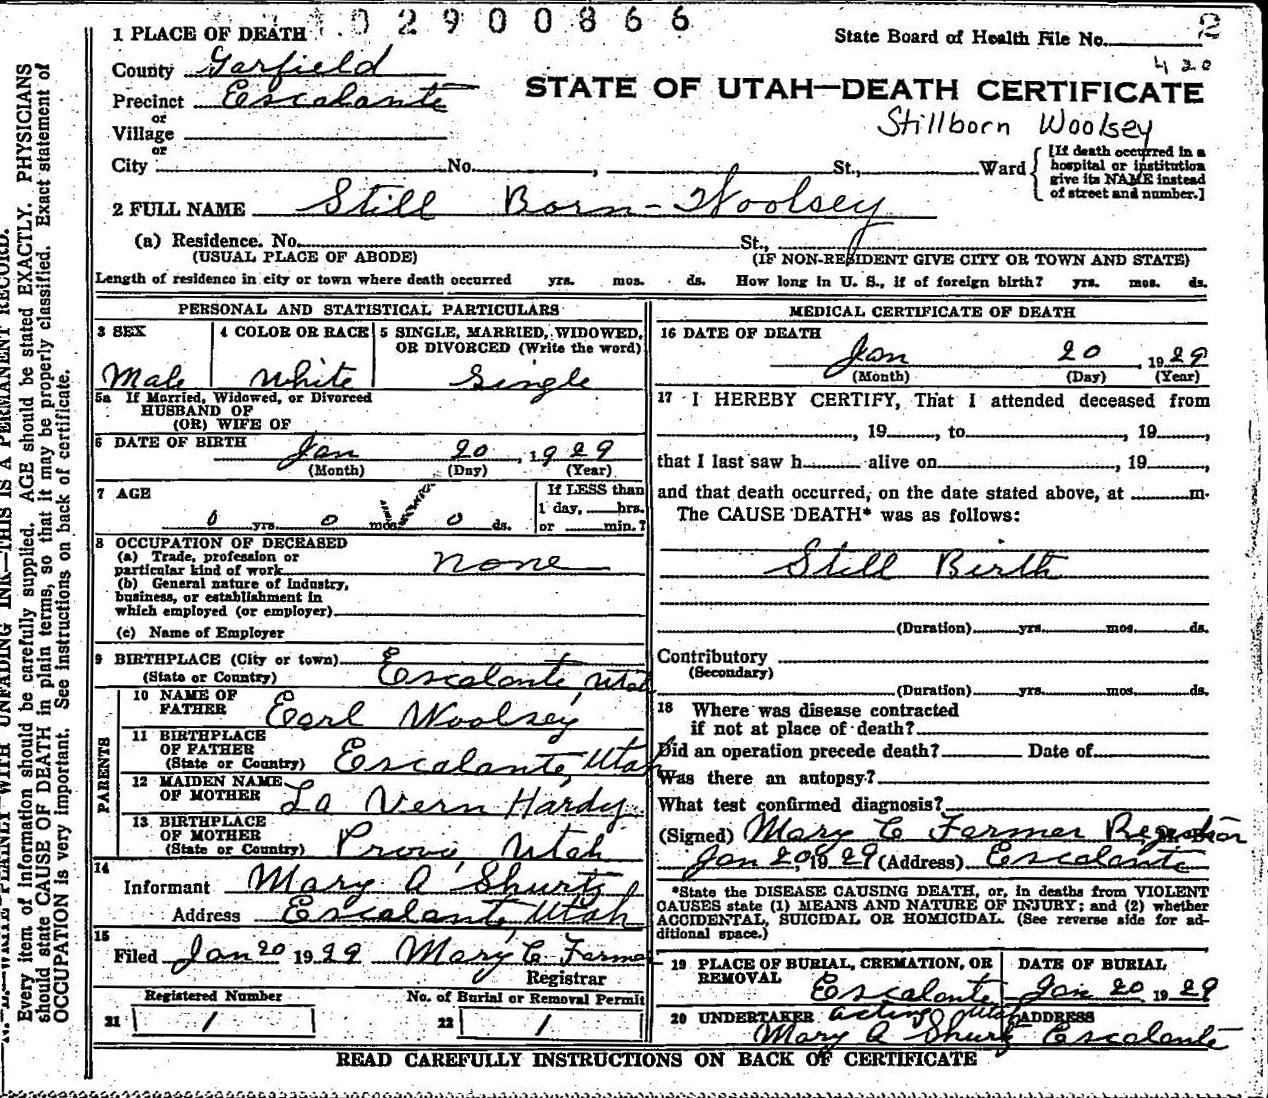 02900866
2
1 PLACE OF DEATH
State Board of Health File No.
420
County Garfield
STATE OF UTAH—DEATH CERTIFICATE
Precinct Escalante
or
Village
Stillborn Woolsey
or
City No. , St., Ward
[If death occurred in a
hospital or institution
give its NAME instead
of street and number.]
2 FULL NAME Still Born - Woolsey
(a) Residence. No. St.,
(USUAL PLACE OF ABODE) (IF NON-RESIDENT GIVE CITY OR TOWN AND STATE)
Length of residence in city or town where death occurred yrs. mos. ds. How long in U. S., if of foreign birth? yrs. mos. ds.
PERSONAL AND STATISTICAL PARTICULARS
3 SEX 4 COLOR OR RACE 5 SINGLE, MARRIED, WIDOWED,
OR DIVORCED (Write the word)
Male White Single
5a If Married, Widowed, or Divorced
HUSBAND OF
(OR) WIFE OF
6 DATE OF BIRTH Jan 20, 1929
(Month) (Day) (Year)
7 AGE If LESS than
1 day, hrs.
0 yrs. 0 mos. 0 ds. or min.?
8 OCCUPATION OF DECEASED
(a) Trade, profession or
particular kind of work none
(b) General nature of Industry,
business, or establishment in
which employed (or employer)
(c) Name of Employer
9 BIRTHPLACE (City or town) Escalante, Utah
(State or Country)
PARENTS
10 NAME OF
FATHER Earl Woolsey
11 BIRTHPLACE
OF FATHER
(State or Country) Escalante, Utah
12 MAIDEN NAME
OF MOTHER La Vern Hardy
13 BIRTHPLACE
OF MOTHER
(State or Country) Provo Utah
14
Informant Mary A Shurtz
Address Escalante, Utah
15
Filed Jan 20 1929 Mary C. Farmer
Registrar
Registered Number No. of Burial or Removal Permit
21 1 22 1
MEDICAL CERTIFICATE OF DEATH
16 DATE OF DEATH
Jan 20, 1929
(Month) (Day) (Year)
17 I HEREBY CERTIFY, That I attended deceased from
, 19 , to , 19 ,
that I last saw h alive on , 19 ,
and that death occurred, on the date stated above, at m.
The CAUSE DEATH* was as follows:
Still Birth
(Duration) yrs. mos. ds.
Contributory
(Secondary)
(Duration) yrs. mos. ds.
18 Where was disease contracted
if not at place of death?
Did an operation precede death? Date of
Was there an autopsy?
What test confirmed diagnosis?
(Signed) Mary C Farmer Registrar
Jan 20, 1929 (Address) Escalante
*State the DISEASE CAUSING DEATH, or, in deaths from VIOLENT
CAUSES state (1) MEANS AND NATURE OF INJURY; and (2) whether
ACCIDENTAL, SUICIDAL OR HOMICIDAL. (See reverse side for ad-
ditional space.)
19 PLACE OF BURIAL, CREMATION, OR DATE OF BURIAL
REMOVAL
Escalante Utah Jan 20 1929
20 UNDERTAKER acting ADDRESS
Mary A Shurtz Escalante
READ CAREFULLY INSTRUCTIONS ON BACK OF CERTIFICATE
PLAINLY WITH UNFADING INK—THIS IS A PERMANENT RECORD.
Every item of information should be carefully supplied. AGE should be stated EXACTLY. PHYSICIANS
should state CAUSE OF DEATH in plain terms, so that it may be properly classified. Exact statement of
OCCUPATION is very important. See instructions on back of certificate.